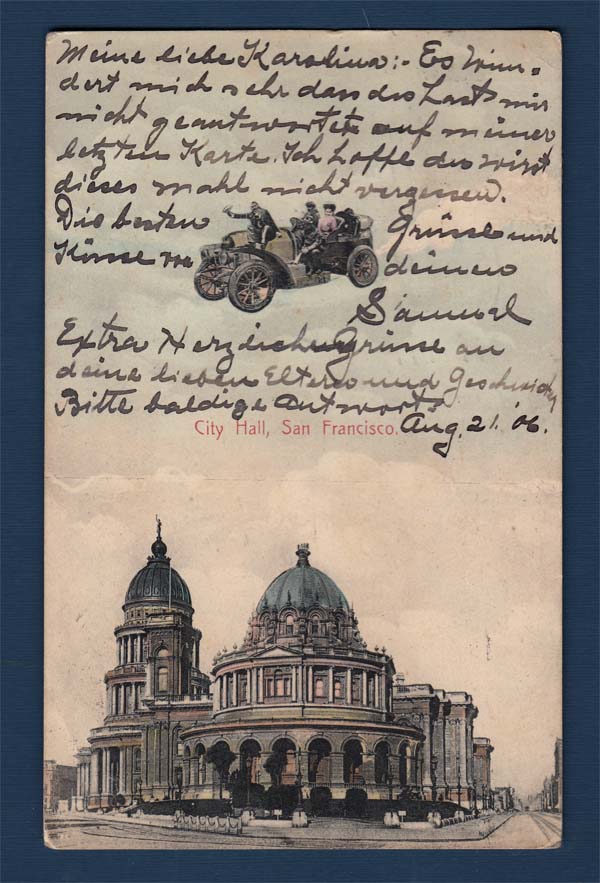 Meine liebe Karolina:- Es Wun=
dert mich sehr dass du hast mir
nicht geantwortet auf meiner
letzten Karte. Ich hoffe du wirst
dieses mahl nicht vergessen.
Die besten Grüsse und
Küsse von deinen
Samuel
Extra Herzliche Grüsse an
deine lieben Eltern und Geschwister
Bitte baldige Antwort.
Aug. 21. '06.
City Hall, San Francisco.